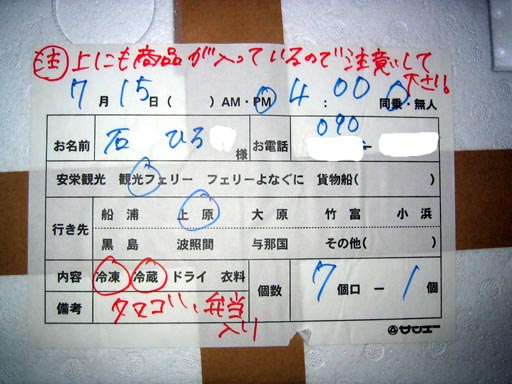 注 上にも商品が入っているので注意して下さい。
7月15日( ) AM・PM 4:00 同乗・無人
お名前 石 ひろ 様 お電話 090 ー
安栄観光 観光フェリー フェリーよなぐに 貨物船( )
行き先 船浦 上原 大原 竹富 小浜
黒島 波照間 与那国 その他( )
内容 冷凍 冷蔵 ドライ 衣料 個数 7個口ー1個
備考 タマゴ、弁当入り
サンエー